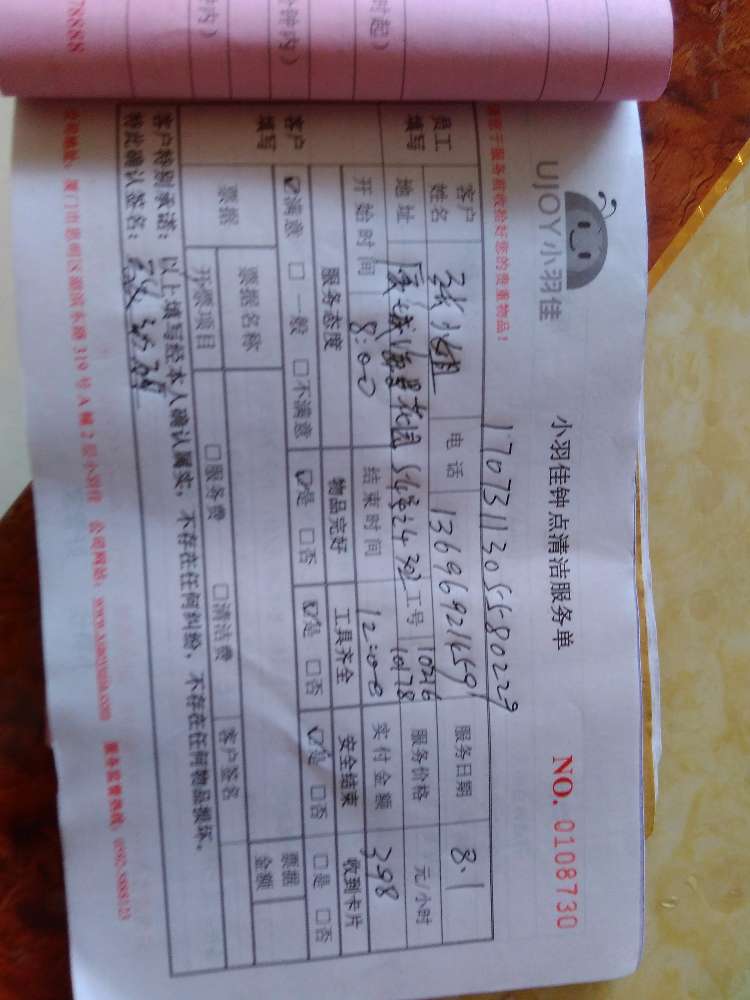 UJOY小羽佳
小羽佳钟点清洁服务单
NO. 0108730
请于服务前收拾好您的贵重物品！
17073113055580229
员工填写
客户姓名 张小姐 电话 13696921459 服务日期 8.1
地址 夏城海景花园 302 工号 10216 10178 服务价格 元/小时
开始时间 8:00 结束时间 12:00 实付金额 398
客户填写
服务态度 物品完好 工具齐全 安全结束 收到卡片
☑满意 □一般 □不满意 ☑是 □否 ☑是 □否 ☑是 □否 □是 □否
票据 票据名称 票据金额
开票项目 □服务费 □清洁费 客户签名
客户特别承诺：以上填写经本人确认属实，不存在任何纠纷，不存在任何物品损坏。
特此确认签名：
厦门市思明区湖滨东路319号A幢2层小羽佳 公司网站：www.xiaoyujia.com 服务监督热线：0592-8888123
78888
时起）
分钟内）
内）